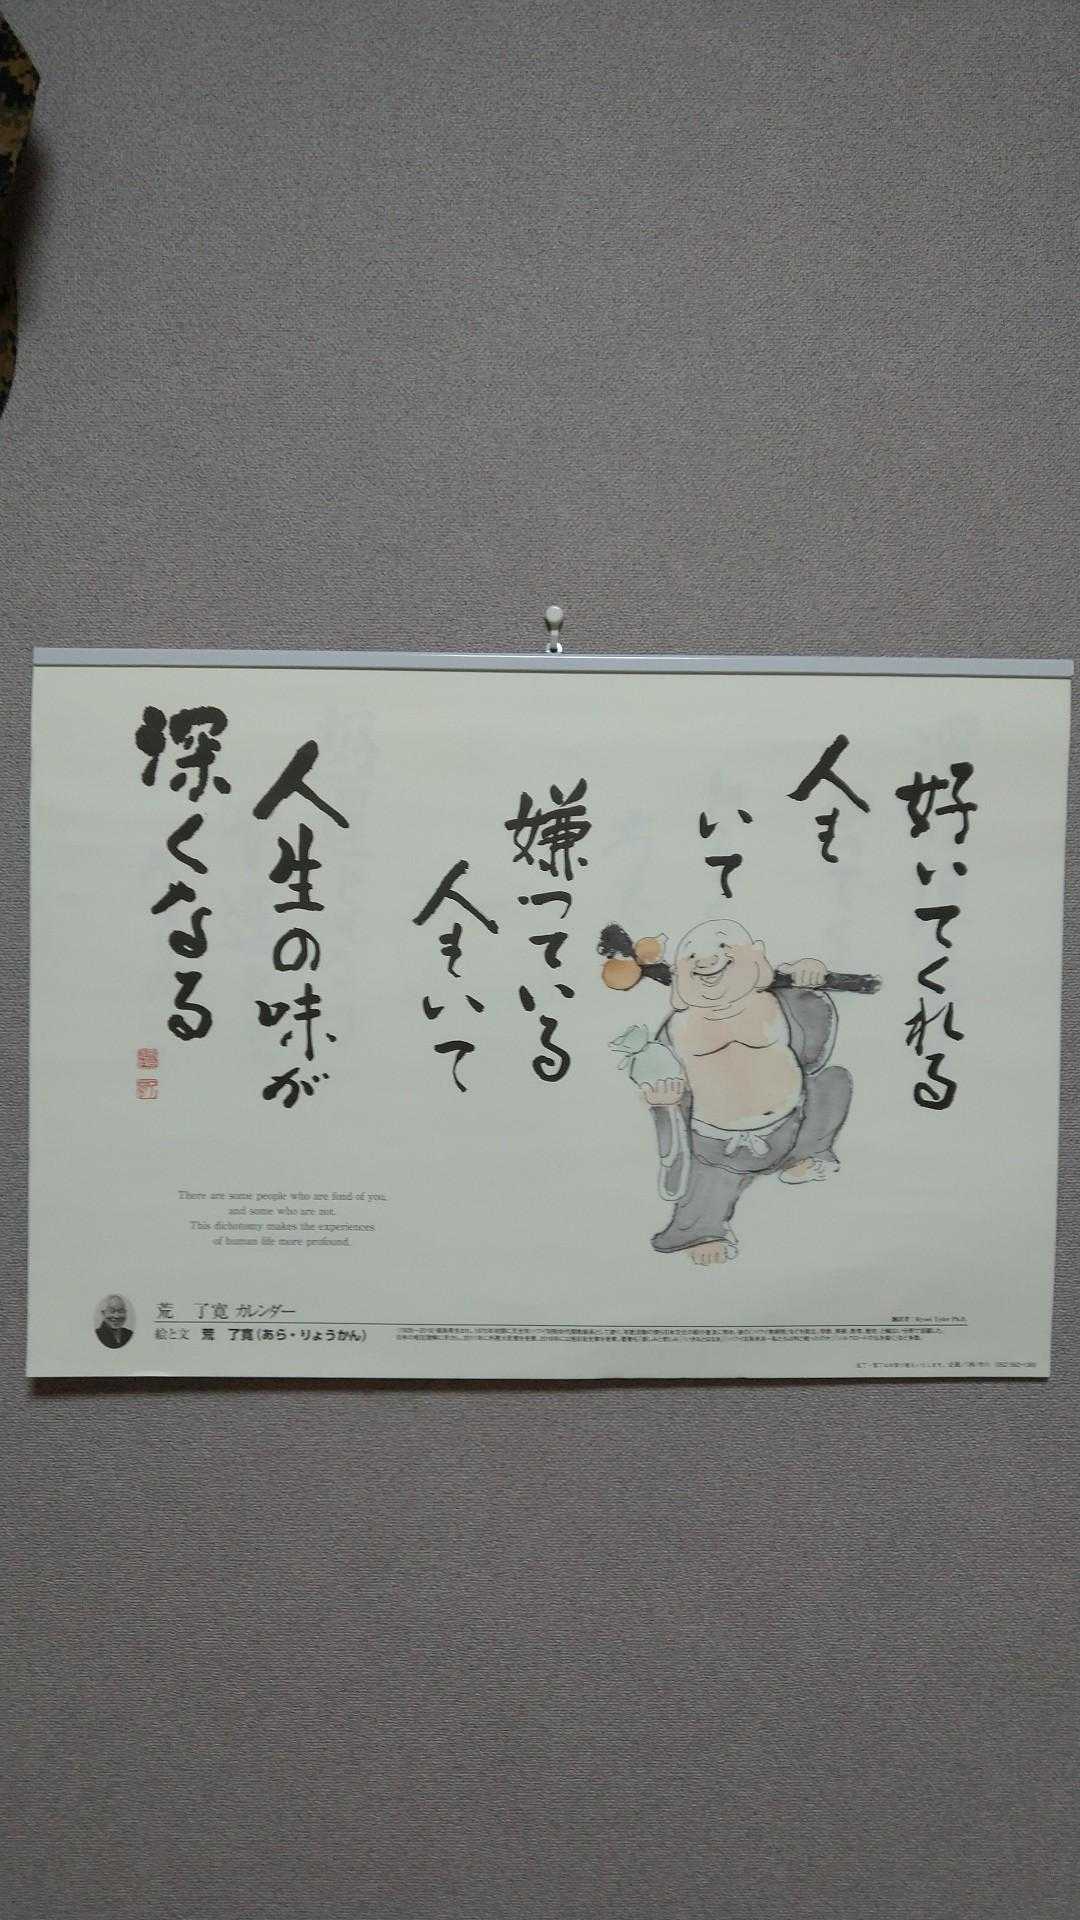 好いてくれる
人も
いて
嫌っている
人もいて
人生の味が
深くなる
There are some people who are fond of you,
and some who are not.
This dichotomy makes the experiences
of human life more profound.
荒 了寛 カレンダー
絵と文 荒 了寛(あら・りょうかん)